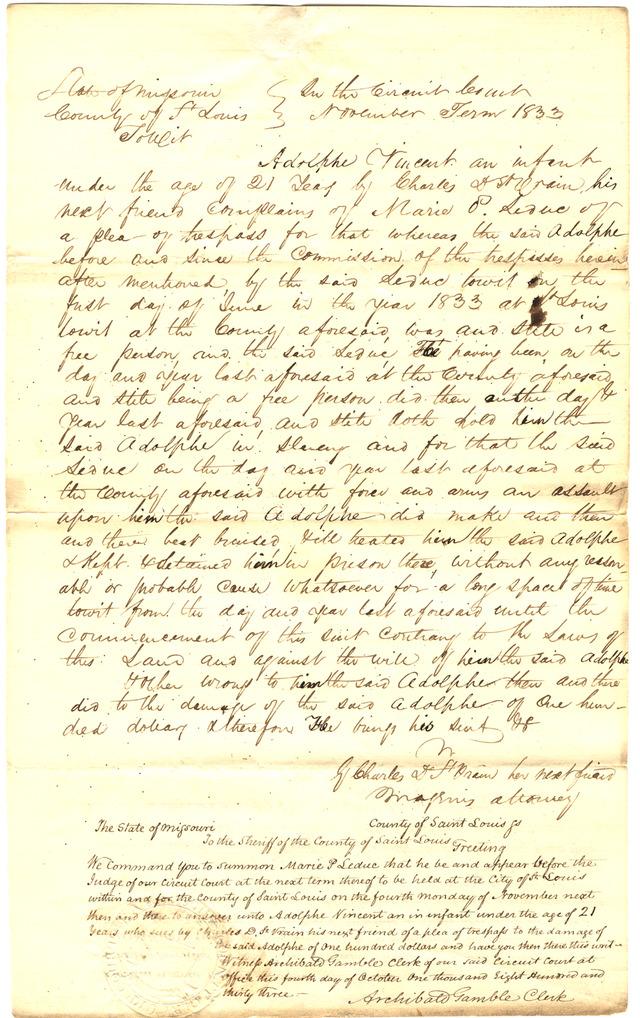 State of Missouri } In the Circuit Court
County of St Louis } November Term 1833
Towit
Adolphe Vincent an infant
under the age of 21 Years by Charles D St Vrain his
next friend complains of Marie P. Leduc of
a plea of trespass for that whereas the said Adolphe
before and since the commission of the trespasses herein
after mentioned by the said Leduc towit on the
first day of June in the year 1833 at St Louis
towit at the County aforesaid, was and still is a
free person, and the said Leduc, He having been, on the
day and year last aforesaid at the County aforesaid
and still being a free person did then on the day &
year last aforesaid, and still doth hold him the
said Adolphe in Slavery and for that the said
Leduc on the day and year last aforesaid at
the County aforesaid with force and arms an assault
upon him the said Adolphe did make and then
and there beat bruised & ill treated him the said Adolphe
& Kept & detained him in preson there, without any reason-
able or probable cause whatsoever for a long space of time
towit from the day and year last aforesaid until the
Commencement of this suit contrary to the Laws of
this Land and against the will of him the said Adolphe
& other wrongs to him the said Adolphe then and there
did to the damage of the said Adolphe of One hun-
dred dollars & therefore He brings his suit &c
By Charles D St Vrain her next friend
attorney
The State of Missouri County of Saint Louis ss
To the Sheriff of the County of Saint Louis Greeting
We Command You to summon Marie P Leduc that he be and appear before the
Judge of our Circuit Court at the next term thereof to be held at the City of St Louis
within and for the County of Saint Louis on the fourth monday of November next
then and there to answer unto Adolphe Vincent an in infant under the age of 21
Years who sues by Charles D. St Vrain his next friend of a plea of trespass to the damage of
the said Adolphe of One hundred dollars and have you then there this writ-
Witness Archibald Gamble Clerk of our said Circuit Court at
office this fourth day of October One thousand Eight Hundred and
thirty three-
Archibald Gamble Clerk